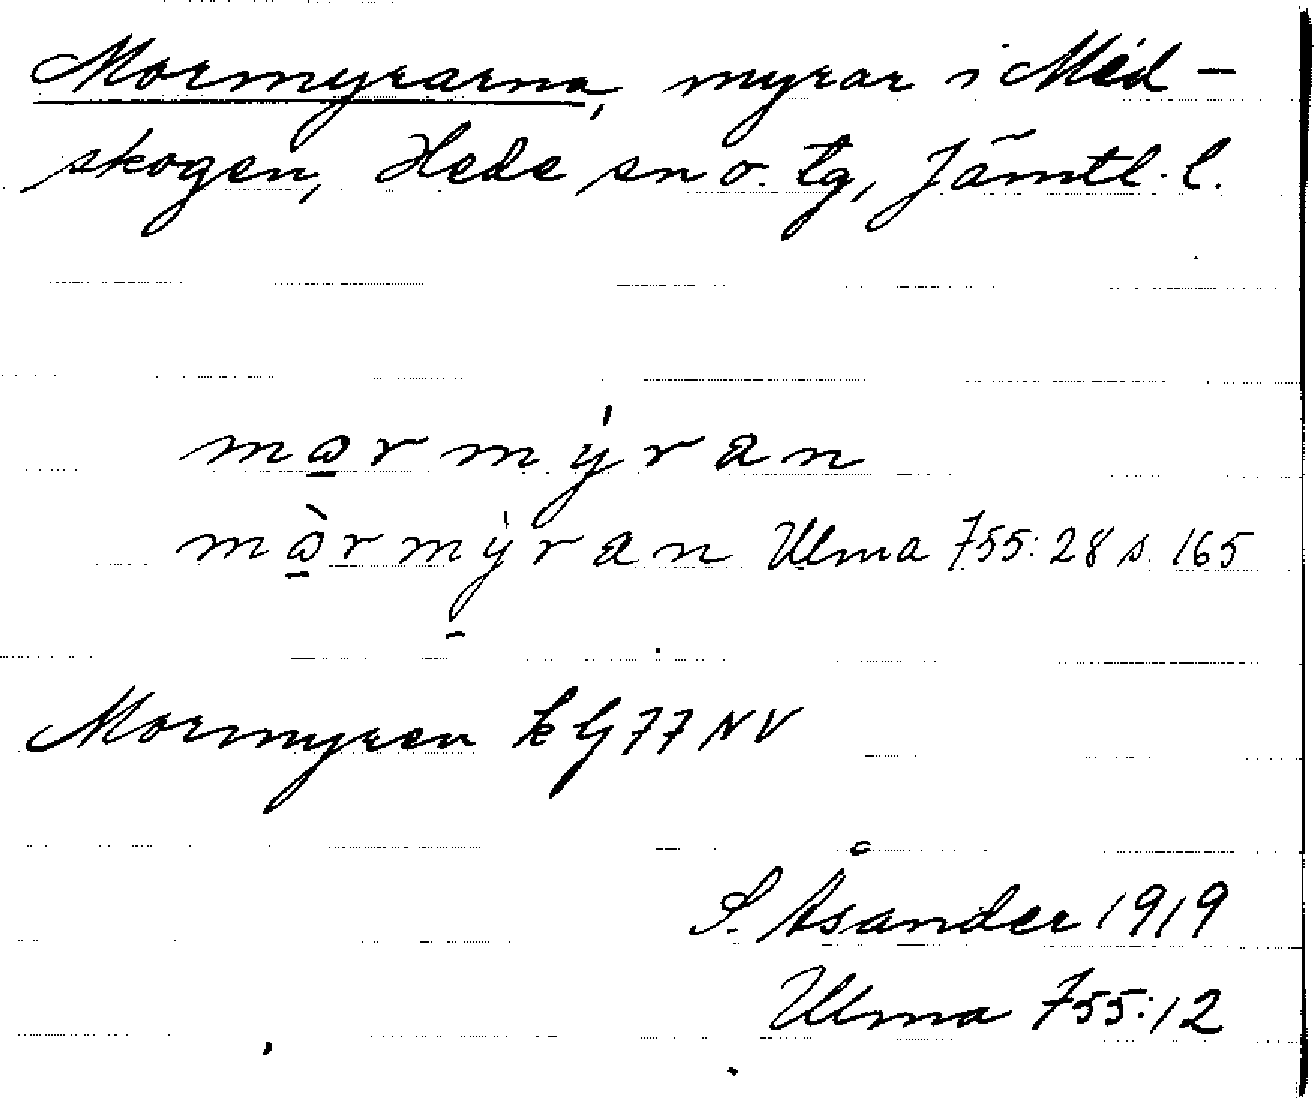 Mormyrarna, myrar i Med-
skogen, Hede sn o. tg, Jämtl. l.
mωrmýran
mὼrmỳran Ulma 755:28 s. 165
Mormyren k G 77 NV
S. Åsander 1919
Ulma 755:12